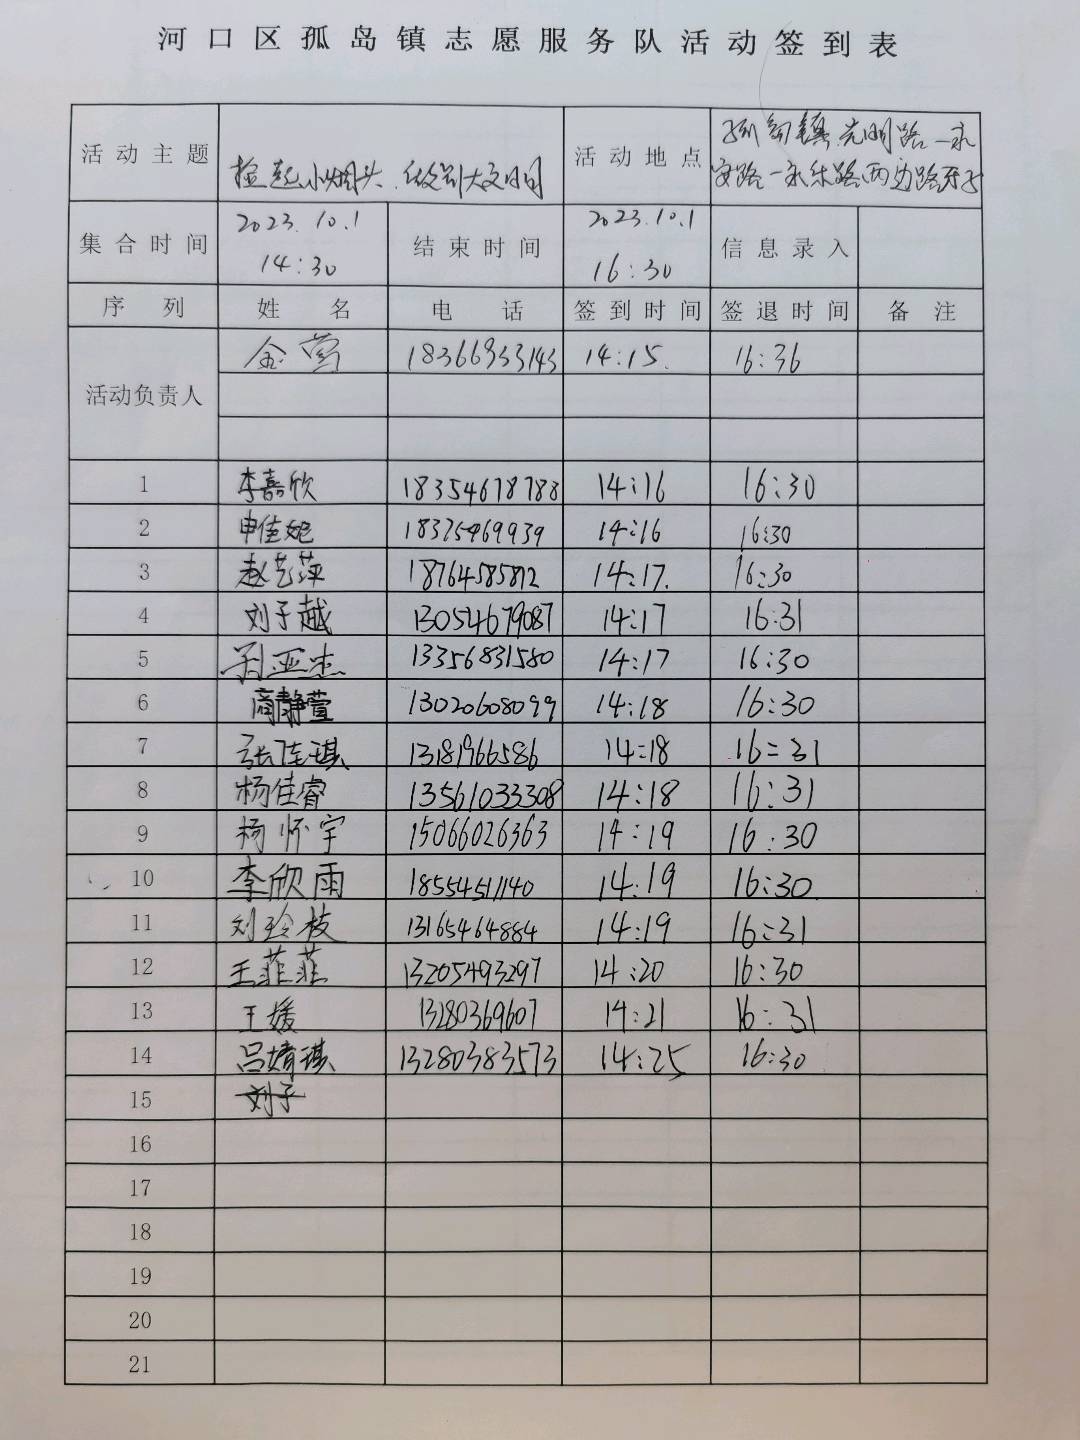 河口区孤岛镇志愿服务队活动签到表
活动主题 捡起小烟头 做到大文明 活动地点 孤岛镇光明路一永安路一永乐路两边路牙子
集合时间 2023.10.1 14:30 结束时间 2023.10.1 16:30 信息录入
序列 姓名 电话 签到时间 签退时间 备注
活动负责人 金莺 18366933143 14:15. 16:36
1 李嘉欣 18354678788 14:16 16:30
2 申佳妮 18325469939 14:16 16:30
3 赵艺萍 18764585812 14:17. 16:30
4 刘子越 13054679087 14:17 16:31
5 孙亚杰 13356831580 14:17 16:30
6 商静萱 13020608099 14:18 16:30
7 张佳琪 13181966586 14:18 16:31
8 杨佳睿 13561033308 14:18 16:31
9 杨怀宇 15066026363 14:19 16:30
10 李欣雨 18554511140 14:19 16:30
11 刘玲枝 13165464884 14:19 16:31
12 王菲菲 13205493297 14:20 16:30
13 王媛 13280369607 14:21 16:31
14 吕婧琪 13280383573 14:25 16:30
15 刘子
16
17
18
19
20
21